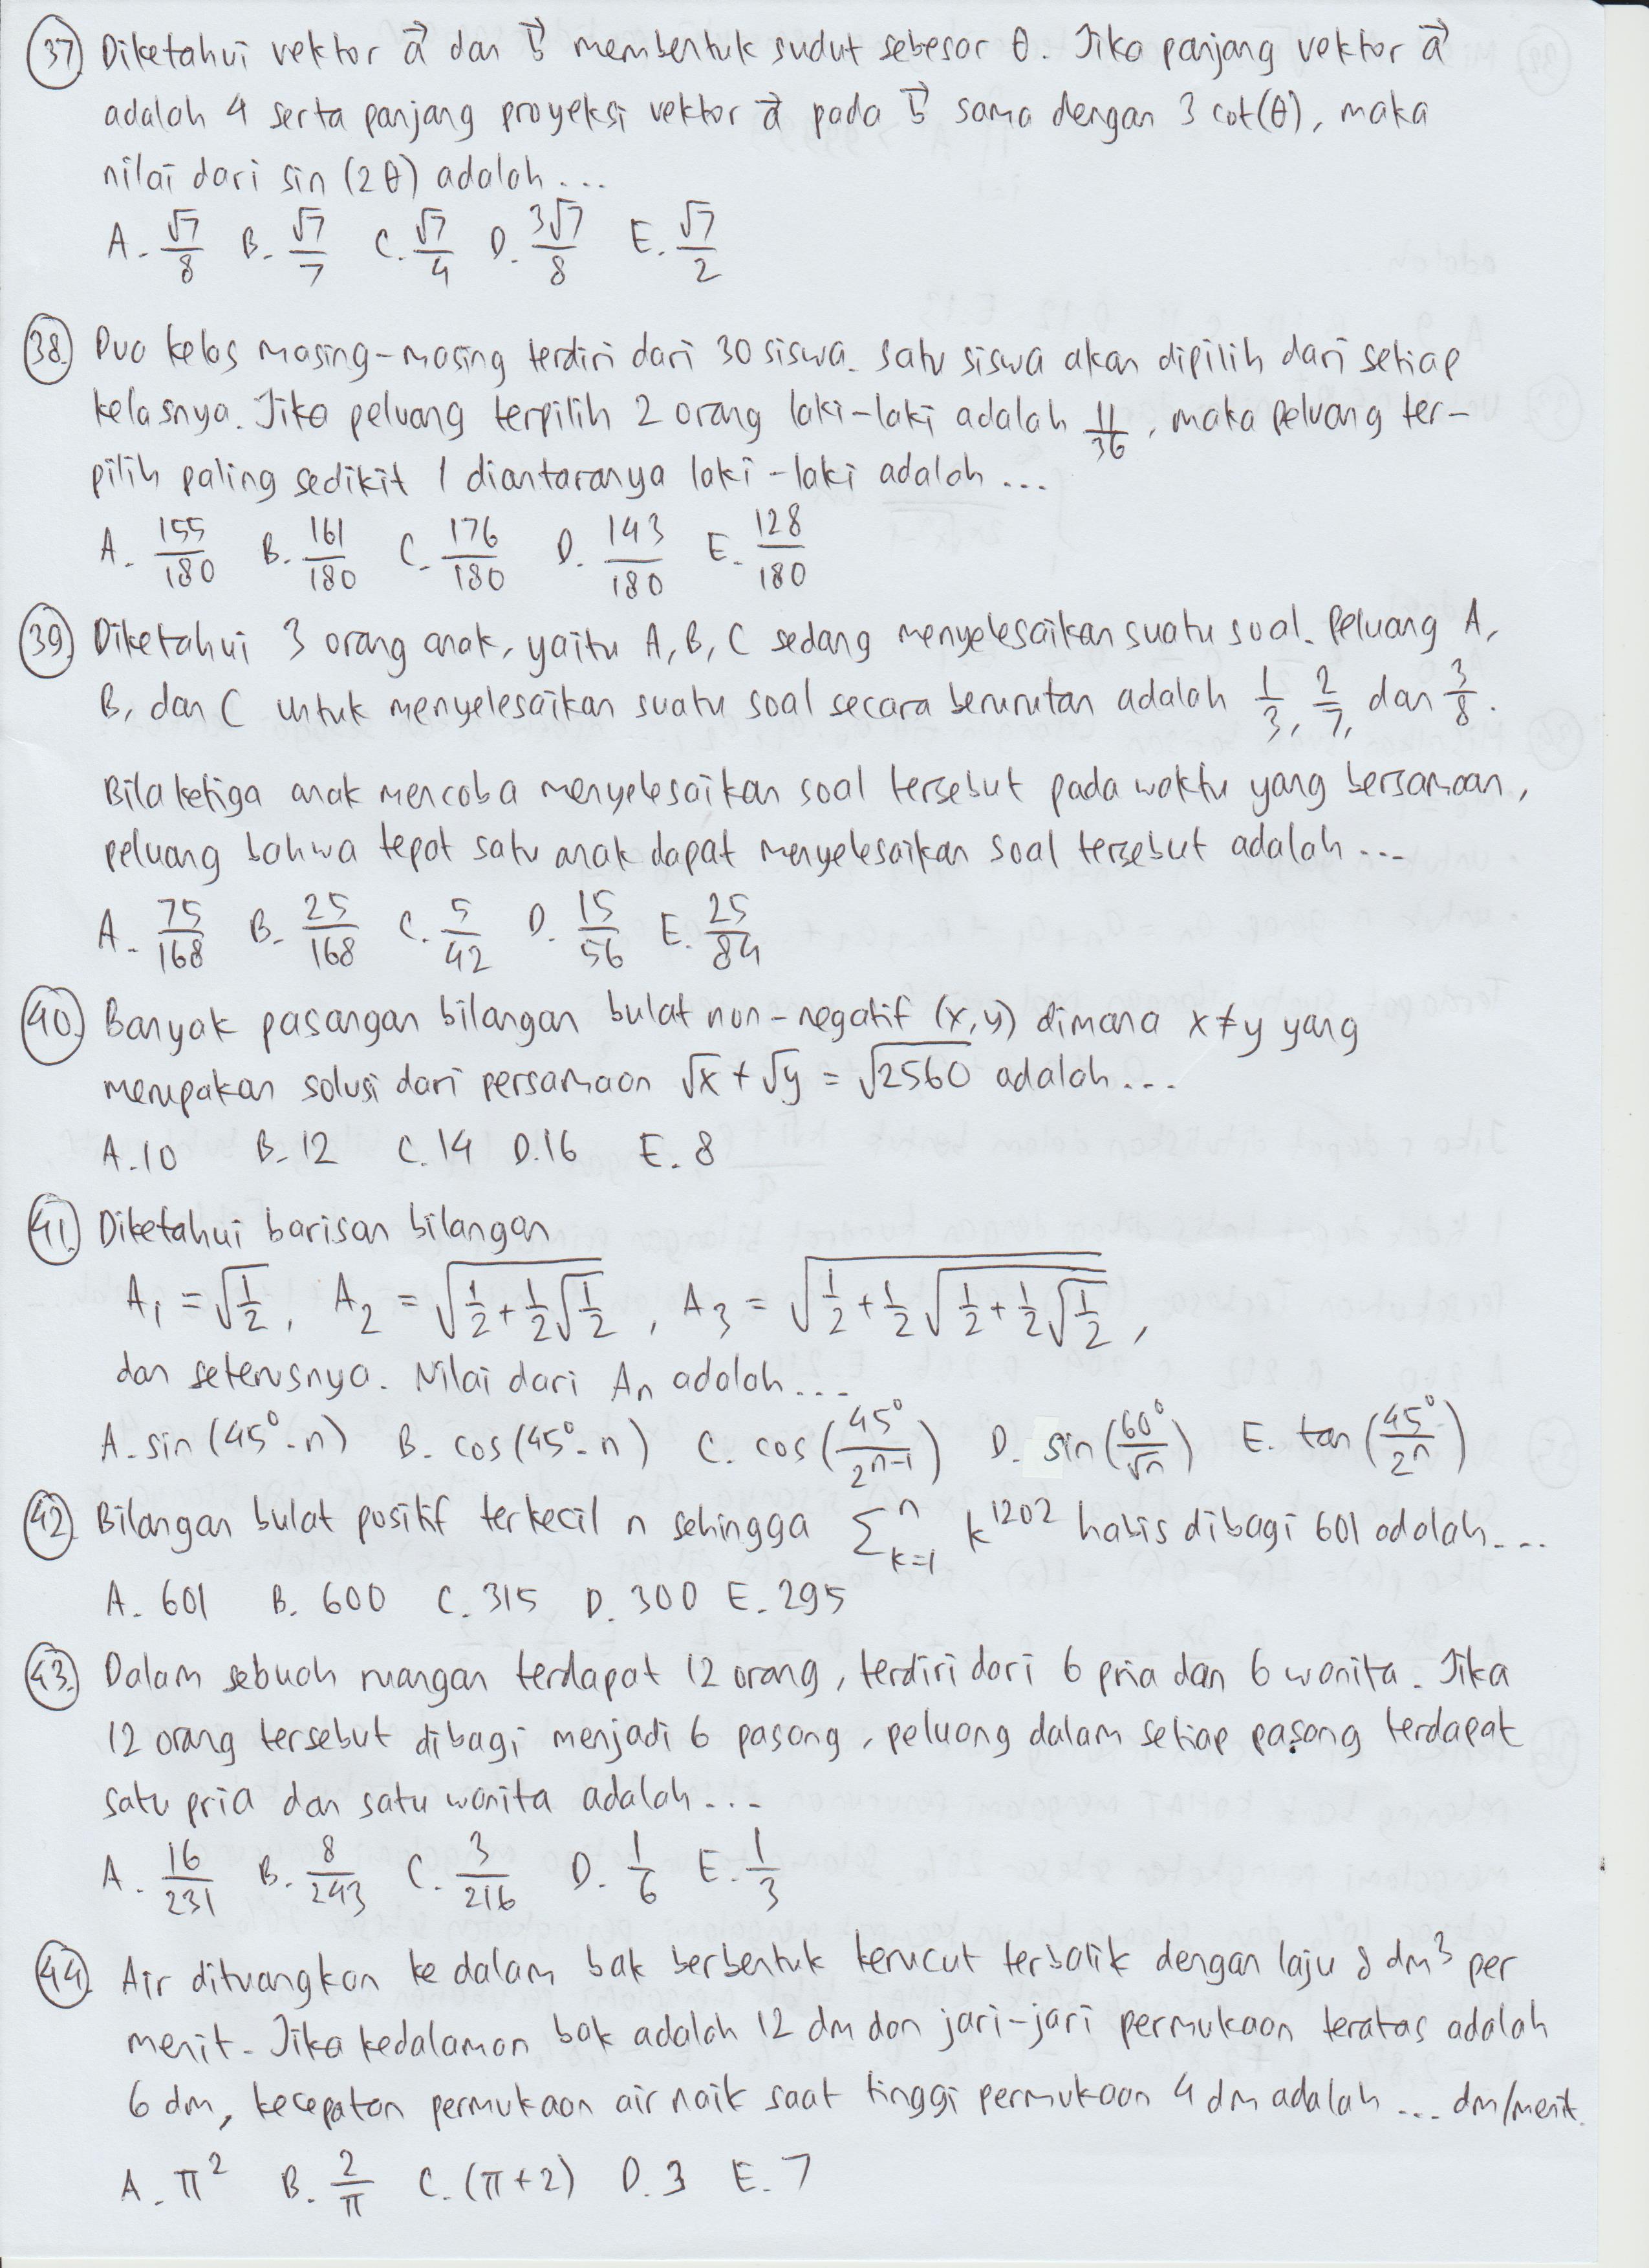 37. Diketahui vektor a⃗ dan b⃗ membentuk sudut sebesar θ. Jika panjang vektor a⃗
adalah 4 serta panjang proyeksi vektor a⃗ pada b⃗ sama dengan 3 cot(θ), maka
nilai dari sin (2θ) adalah ...
A. √7/8 B. √7/7 C. √7/4 D. 3√7/8 E. √7/2
38. Dua kelas masing-masing terdiri dari 30 siswa. Satu siswa akan dipilih dari setiap
kelasnya. Jika peluang terpilih 2 orang laki-laki adalah 11/36, maka peluang ter-
pilih paling sedikit 1 diantaranya laki-laki adalah ...
A. 155/180 B. 161/180 C. 176/180 D. 143/180 E. 128/180
39. Diketahui 3 orang anak, yaitu A, B, C sedang menyelesaikan suatu soal. Peluang A,
B, dan C untuk menyelesaikan suatu soal secara berurutan adalah 1/3, 2/7, dan 3/8.
Bila ketiga anak mencoba menyelesaikan soal tersebut pada waktu yang bersamaan,
peluang bahwa tepat satu anak dapat menyelesaikan soal tersebut adalah ...
A. 75/168 B. 25/168 C. 5/42 D. 15/56 E. 25/84
40. Banyak pasangan bilangan bulat non-negatif (x,y) dimana x≠y yang
merupakan solusi dari persamaan √x + √y = √2560 adalah ...
A. 10 B. 12 C. 14 D. 16 E. 8
41. Diketahui barisan bilangan
A₁ = √(1/2), A₂ = √(1/2+1/2√(1/2)), A₃ = √(1/2+1/2√(1/2+1/2√(1/2))),
dan seterusnya. Nilai dari Aₙ adalah ...
A. sin (45°-n) B. cos (45°-n) C. cos (45°/2ⁿ⁻¹) D. sin (60°/√n) E. tan (45°/2ⁿ)
42. Bilangan bulat positif terkecil n sehingga ∑ⁿₖ₌₁ k¹²⁰² habis dibagi 601 adalah ...
A. 601 B. 600 C. 315 D. 300 E. 295
43. Dalam sebuah ruangan terdapat 12 orang, terdiri dari 6 pria dan 6 wanita. Jika
12 orang tersebut dibagi menjadi 6 pasang, peluang dalam setiap pasang terdapat
satu pria dan satu wanita adalah ...
A. 16/231 B. 8/243 C. 3/216 D. 1/6 E. 1/3
44. Air dituangkan ke dalam bak berbentuk kerucut terbalik dengan laju 8 dm³ per
menit. Jika kedalaman bak adalah 12 dm dan jari-jari permukaan teratas adalah
6 dm, kecepatan permukaan air naik saat tinggi permukaan 4 dm adalah ... dm/menit.
A. π² B. 2/π C. (π+2) D. 3 E. 7